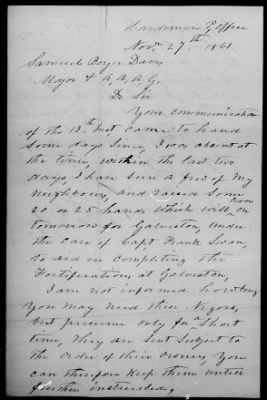 Hardeman P, Office
Novr 27th 1861
Samuel Boyer Davis
Major & A, A, A, G,
Dr Sir
Your communication
of the 13th Inst came to hand
some days since, I was absent at
the time, within the last two
days, I have seen a few of my
neighbours, and raised some
20 or 25 hands, which will leave
tomorrow for Galveston, under
the care of Capt Frank Swan,
to aid in completing the
Fortifications at Galveston,
I am not informed how long
you may need these Negros,
but presume only for a short
time, They are sent Subject to
the order of their owners, You
can therefore keep them until
further instructed,